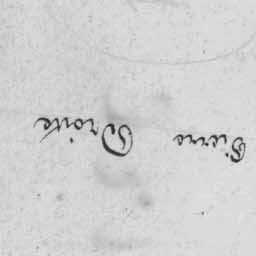 Pierre Droite